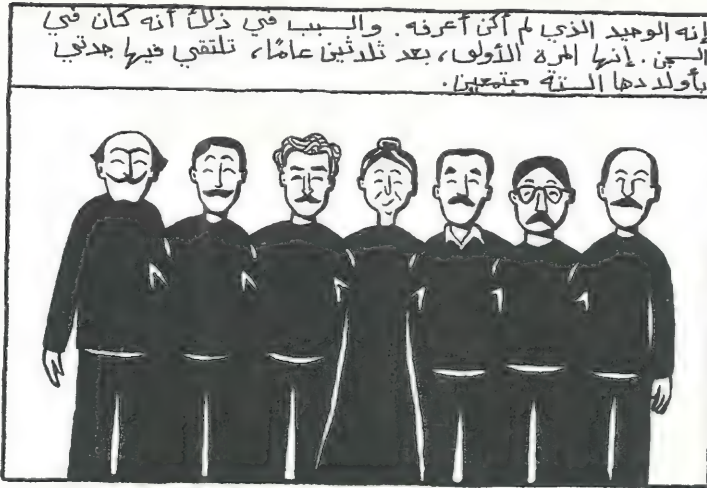 إنه الوحيد الذي لم أكن أعرفه. والسبب في ذلك أنه كان في
السجن. إنها المرة الأولى، بعد ثلاثين عامًا، تلتقي فيها جدتي
بأولادها الستة مجتمعين.